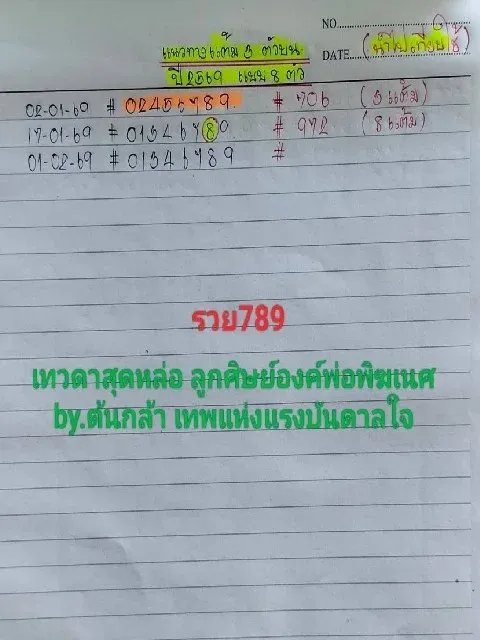 NO.
แนวทาง แต้ม 3 ตัวบน
DATE. (นำไปเทียบใช้)
ปี 2569 แบบ 8 ตัว
02-01-69 # 02456789. # 706 (3 แต้ม)
17-01-69 # 01346780 # 972 (8 แต้ม)
01-02-69 # 01346789 #
รวย789
เทวดาสุดหล่อ ลูกศิษย์องค์พ่อพิฆเนศ
by.ต้นกล้า เทพแห่งแรงบันดาลใจ